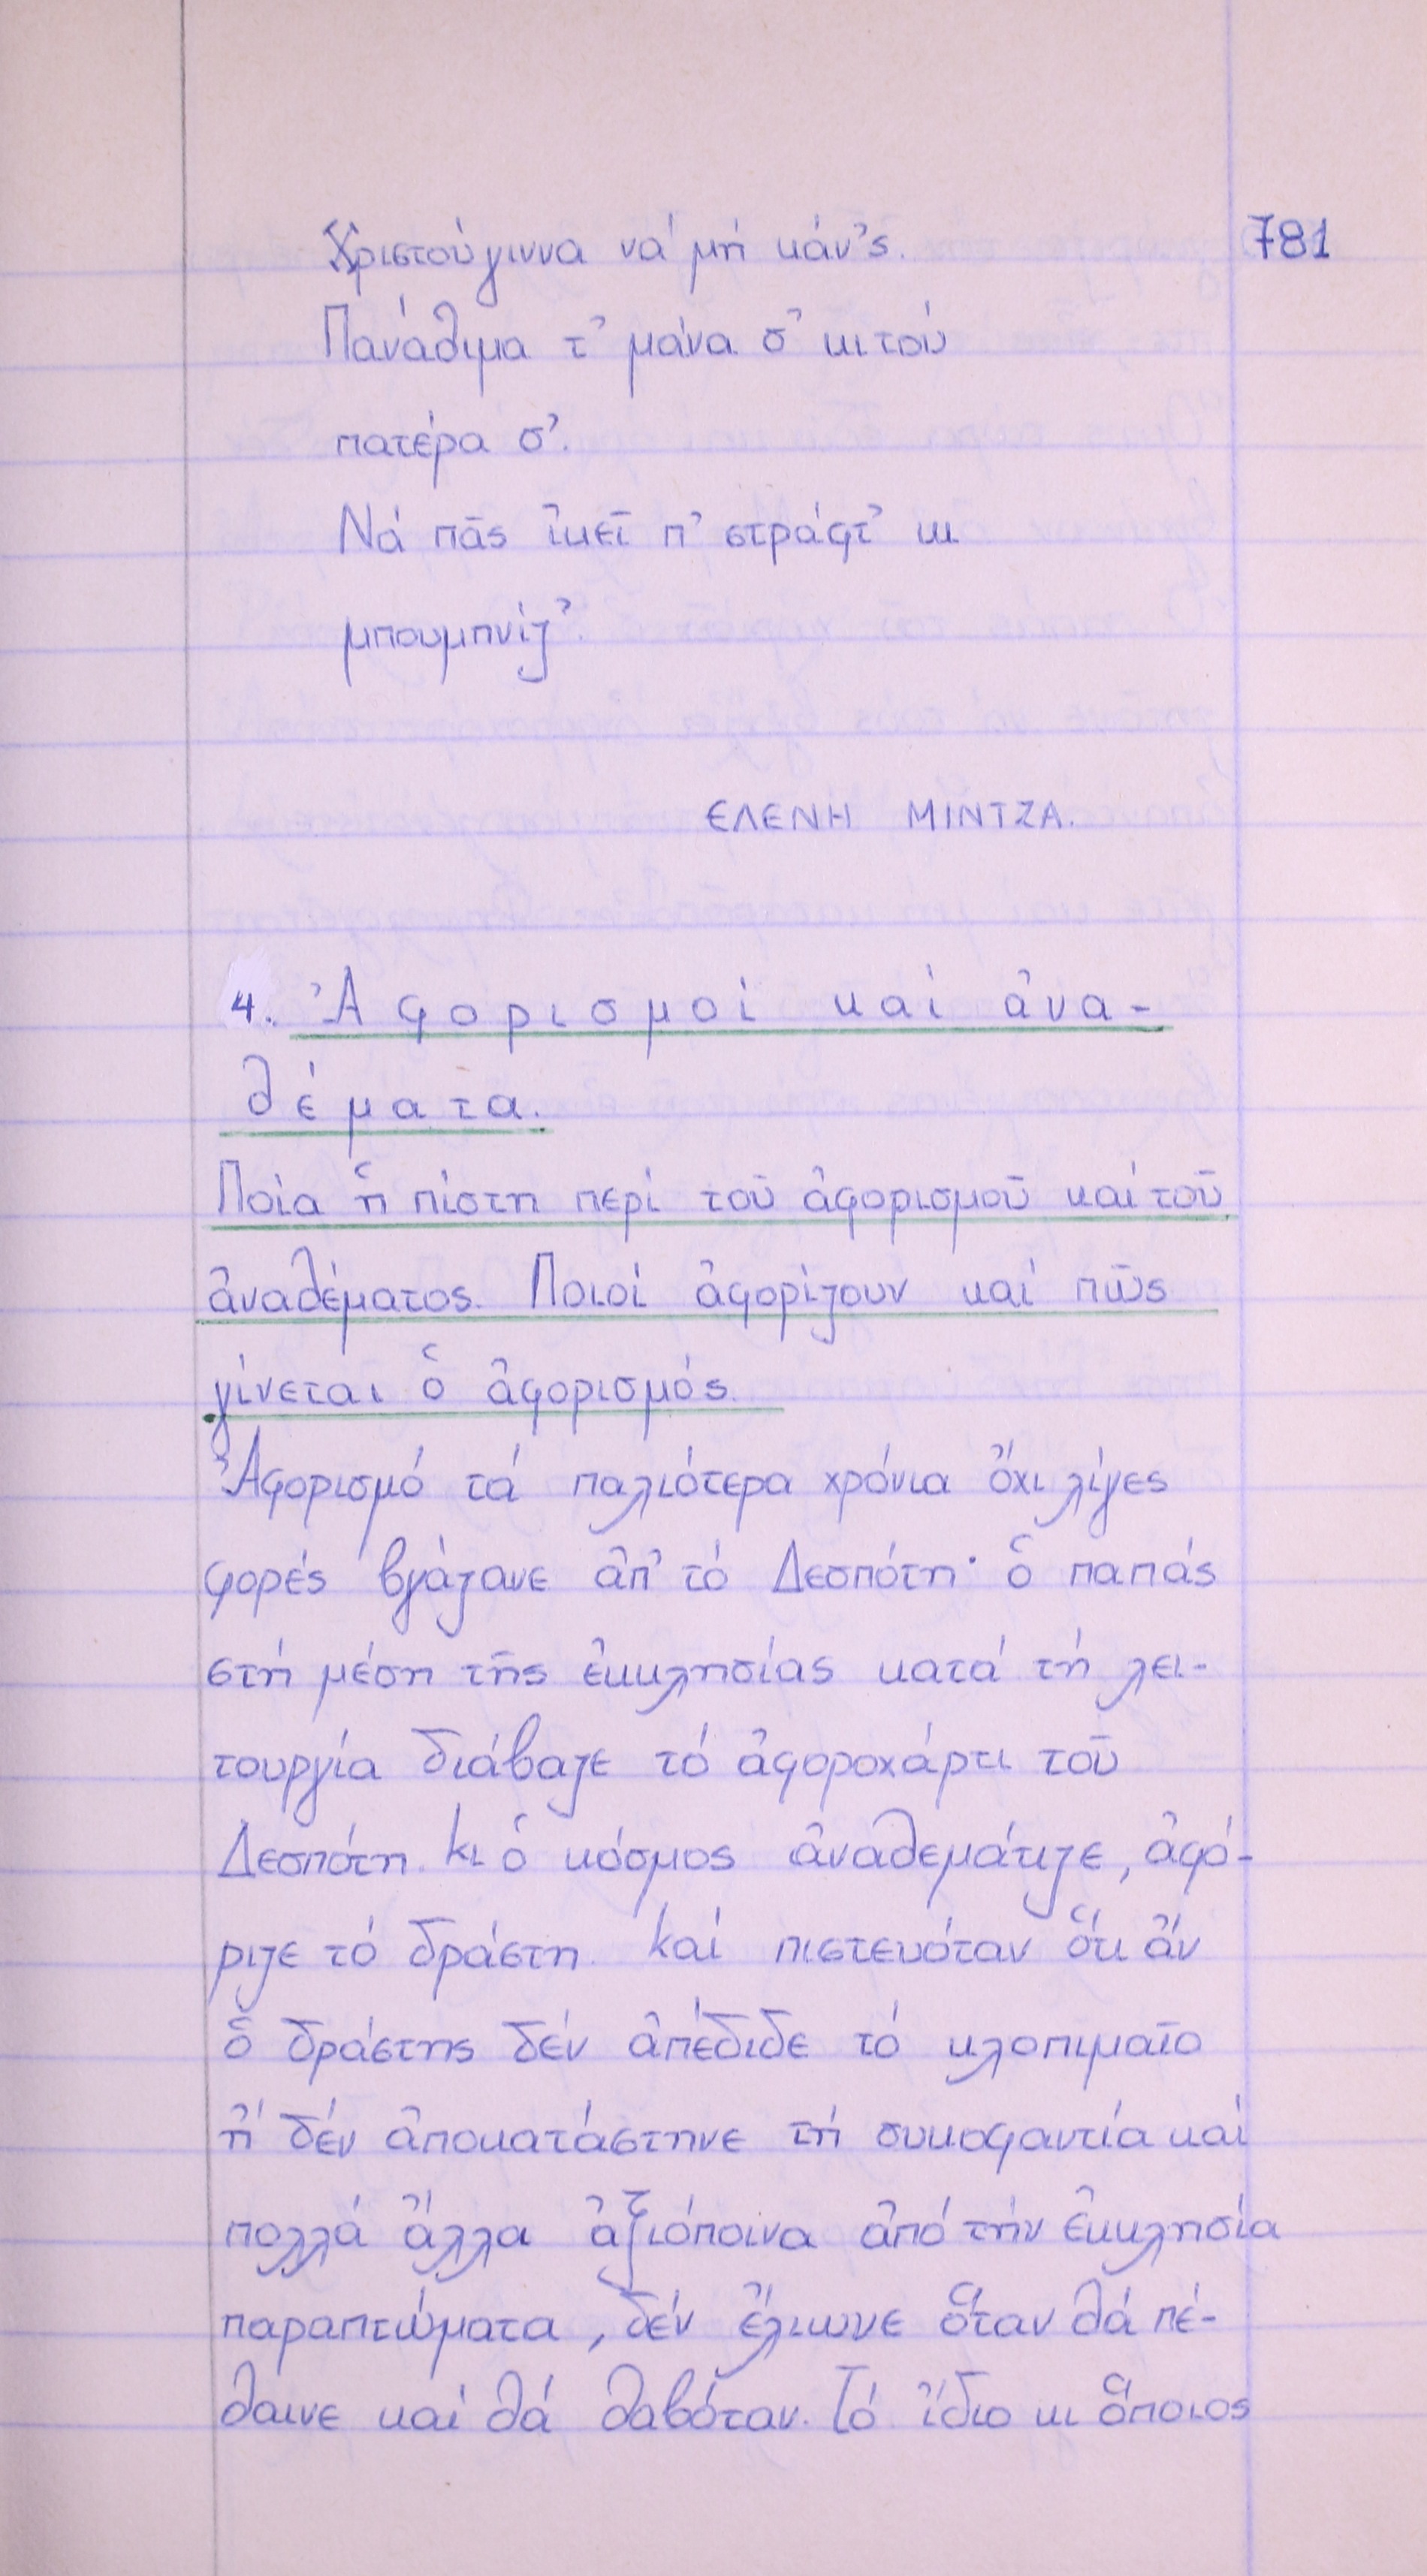 Χριστούγιννα νά μή κάν᾿ς.
781
Πανάθιμα τ᾿ μάνα σ᾿ κι τού
πατέρα σ᾿.
Νά πᾶς ἰκεῖ π᾿ στράφτ᾿ κι
μπουμπνίζ᾿.
ΕΛΕΝΗ ΜΙΝΤΖΑ.
4. Ἀφορισμοί καί ἀνα-
θέματα.
Ποία ἡ πίστη περί τοῦ ἀφορισμοῦ καί τοῦ
ἀναθέματος. Ποιοί ἀφορίζουν καί πῶς
γίνεται ὁ ἀφορισμός.
Ἀφορισμό τά παλιότερα χρόνια ὄχι λίγες
φορές βγάζανε ἀπ᾿ τό Δεσπότη· ὁ παπάς
στή μέση τῆς ἐκκλησίας κατά τή λει-
τουργία διάβαζε τό ἀφοροχάρτι τοῦ
Δεσπότη. κι ὁ κόσμος ἀναθεμάτιζε, ἀφό-
ριζε τό δράστη. καί πιστευόταν ὅτι ἄν
ὁ δράστης δέν ἀπέδιδε τό κλοπιμαῖο
ἤ δέν ἀποκατάστηνε τή συκοφαντία καί
πολλά ἄλλα ἀξιόποινα ἀπό τήν ἐκκλησία
παραπτώματα, δέν ἔλιωνε ὅταν θά πέ-
θαινε καί θά θαβόταν. Τό ἴδιο κι ὅποιος